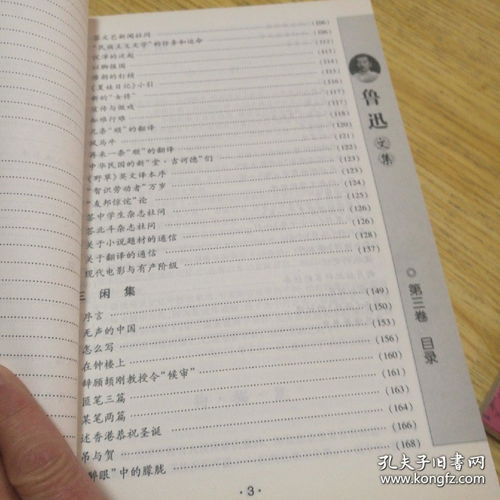 答文艺新闻社问 (106)
“民族主义文学”的任务和运命
沉滓的泛起 (112)
以脚报国 (114)
唐朝的钉梢 (115)
《夏娃日记》小引 (116)
新的“女将” (117)
宣传与做戏
知难行难
几条“顺”的翻译 (120)
风马牛 (121)
再来一条“顺”的翻译 (122)
中华民国的新“堂·吉诃德”们 (123)
《野草》英文译本序 (124)
“智识劳动者”万岁 (124)
“友邦惊诧”论 (125)
答中学生杂志社问 (126)
答北斗杂志社问 (126)
关于小说题材的通信 (128)
关于翻译的通信
现代电影与有产阶级 (137)
三闲集
序言 (149)
无声的中国 (150)
怎么写 (153)
在钟楼上 (156)
辞顾颉刚教授令“候审” (160)
匪笔三篇 (161)
某笔两篇 (163)
述香港恭祝圣诞 (164)
吊与贺 (166)
“醉眼”中的朦胧 (168)
·3·
鲁迅
文集
第三卷 目录
孔夫子旧书网
www.kongfz.com